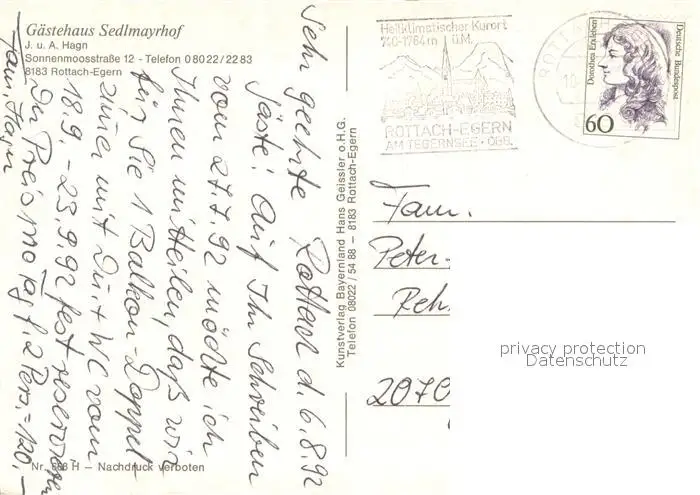 Gästehaus Sedlmayrhof
J. u. A. Hagn
Sonnenmoosstraße 12 - Telefon 0 80 22 / 22 83
8183 Rottach-Egern
Rottach d. 6.8.92
Sehr geehrte
Gäste! Auf Ihr Schreiben
vom 27.7.92 möchte ich
Ihnen mitteilen, daß wir
für Sie 1 Balkon-Doppel-
zimmer mit Du. + WC vom
18.9. - 23.9.92 fest reservieren
Der Preis pro Tag f. 2 Pers. = 120.-
Fam. Hagn
Nr. 668 H – Nachdruck verboten
Kunstverlag Bayernland Hans Geissler o.H.G.
Telefon 08022 / 54 88 – 8183 Rottach-Egern
Heilklimatischer Kurort
740-1764 m ü.M.
ROTTACH-EGERN
AM TEGERNSEE · OBB.
ROTTACH
Dorothea Erxleben
Deutsche Bundespost
60
Fam.
Peter
Reh
2070
privacy protection
Datenschutz